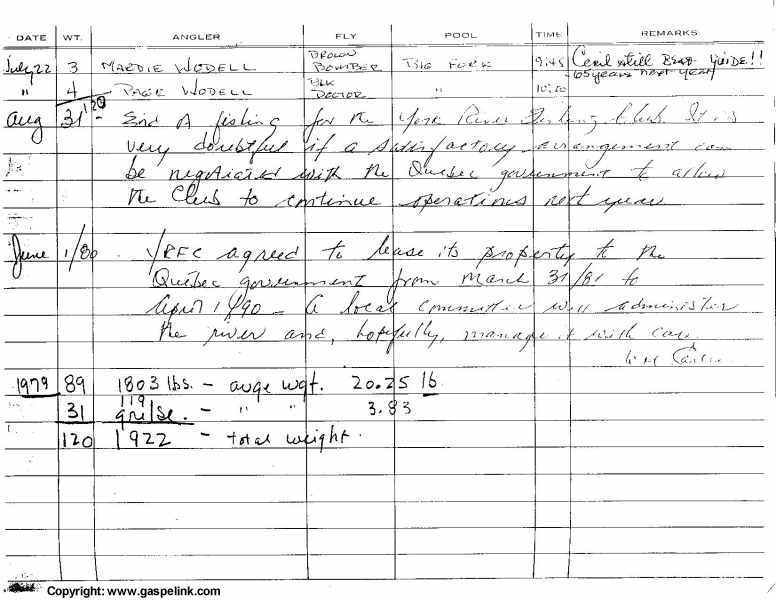 DATE WT. ANGLER FLY POOL TIME REMARKS
July 22 3 MARDIE WODELL BROWN BOMBER BIG FORK 9:45 Cecil still BEAR GUIDE!!
65 years next year
" 4 PAGE WODELL BLK DOCTOR " 10:20
120
Aug 31 - End of fishing for the York River Fishing Club. It is
very doubtful if a satisfactory arrangement can
be negotiated with the Quebec government to allow
the Club to continue operations next year
June 1/80. YRFC agreed to lease its property to the
Quebec government from March 31/81 to
April 1/90 - A local committee will administer
the river and, hopefully, manage it with care.
1979 89 1803 lbs. - avge wgt. 20.25 lb
31 119 grilse. - " " 3.83
120 1922 - total weight.
Copyright: www.gaspelink.com